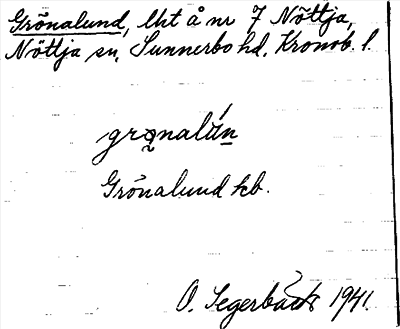 Grönalund, lht å nr 7 Nöttja,
Nöttja sn, Sunnerbo hd, Kronob. l.
grǫnalún
Grönalund kb.
O. Segerbäck 1941.